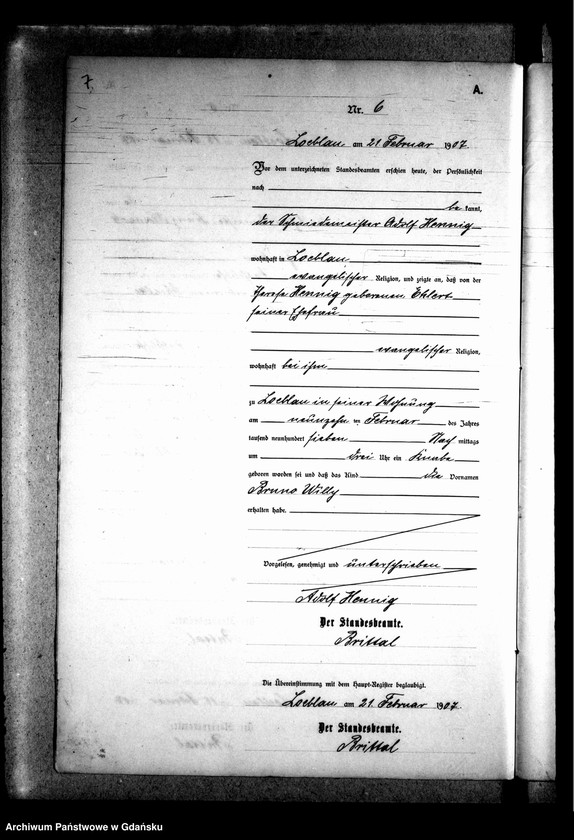 7
A.
Nr. 6
Loeblau am 21 Februar 1907.
Vor dem unterzeichneten Standesbeamten erschien heute, der Persönlichkeit
nach
be kannt,
der Schmiedemeister Adolf Hennig
wohnhaft in Loeblau
evangelischer Religion, und zeigte an, daß von der
Therese Hennig geborenen Ehlert
seiner Ehefrau
evangelischer Religion,
wohnhaft bei ihm
zu Loeblau in seiner Wohnung
am neunzehn ten Februar des Jahres
tausend neunhundert sieben Nach mittags
um drei Uhr ein Knabe
geboren worden sei und daß das Kind die Vornamen
Bruno Willy
erhalten habe.
Vorgelesen, genehmigt und unterschrieben
Adolf Hennig
Der Standesbeamte.
Brittal
Die Übereinstimmung mit dem Haupt-Register beglaubigt.
Loeblau am 21. Februar 1907.
Der Standesbeamte.
Brittal
Archiwum Państwowe w Gdańsku